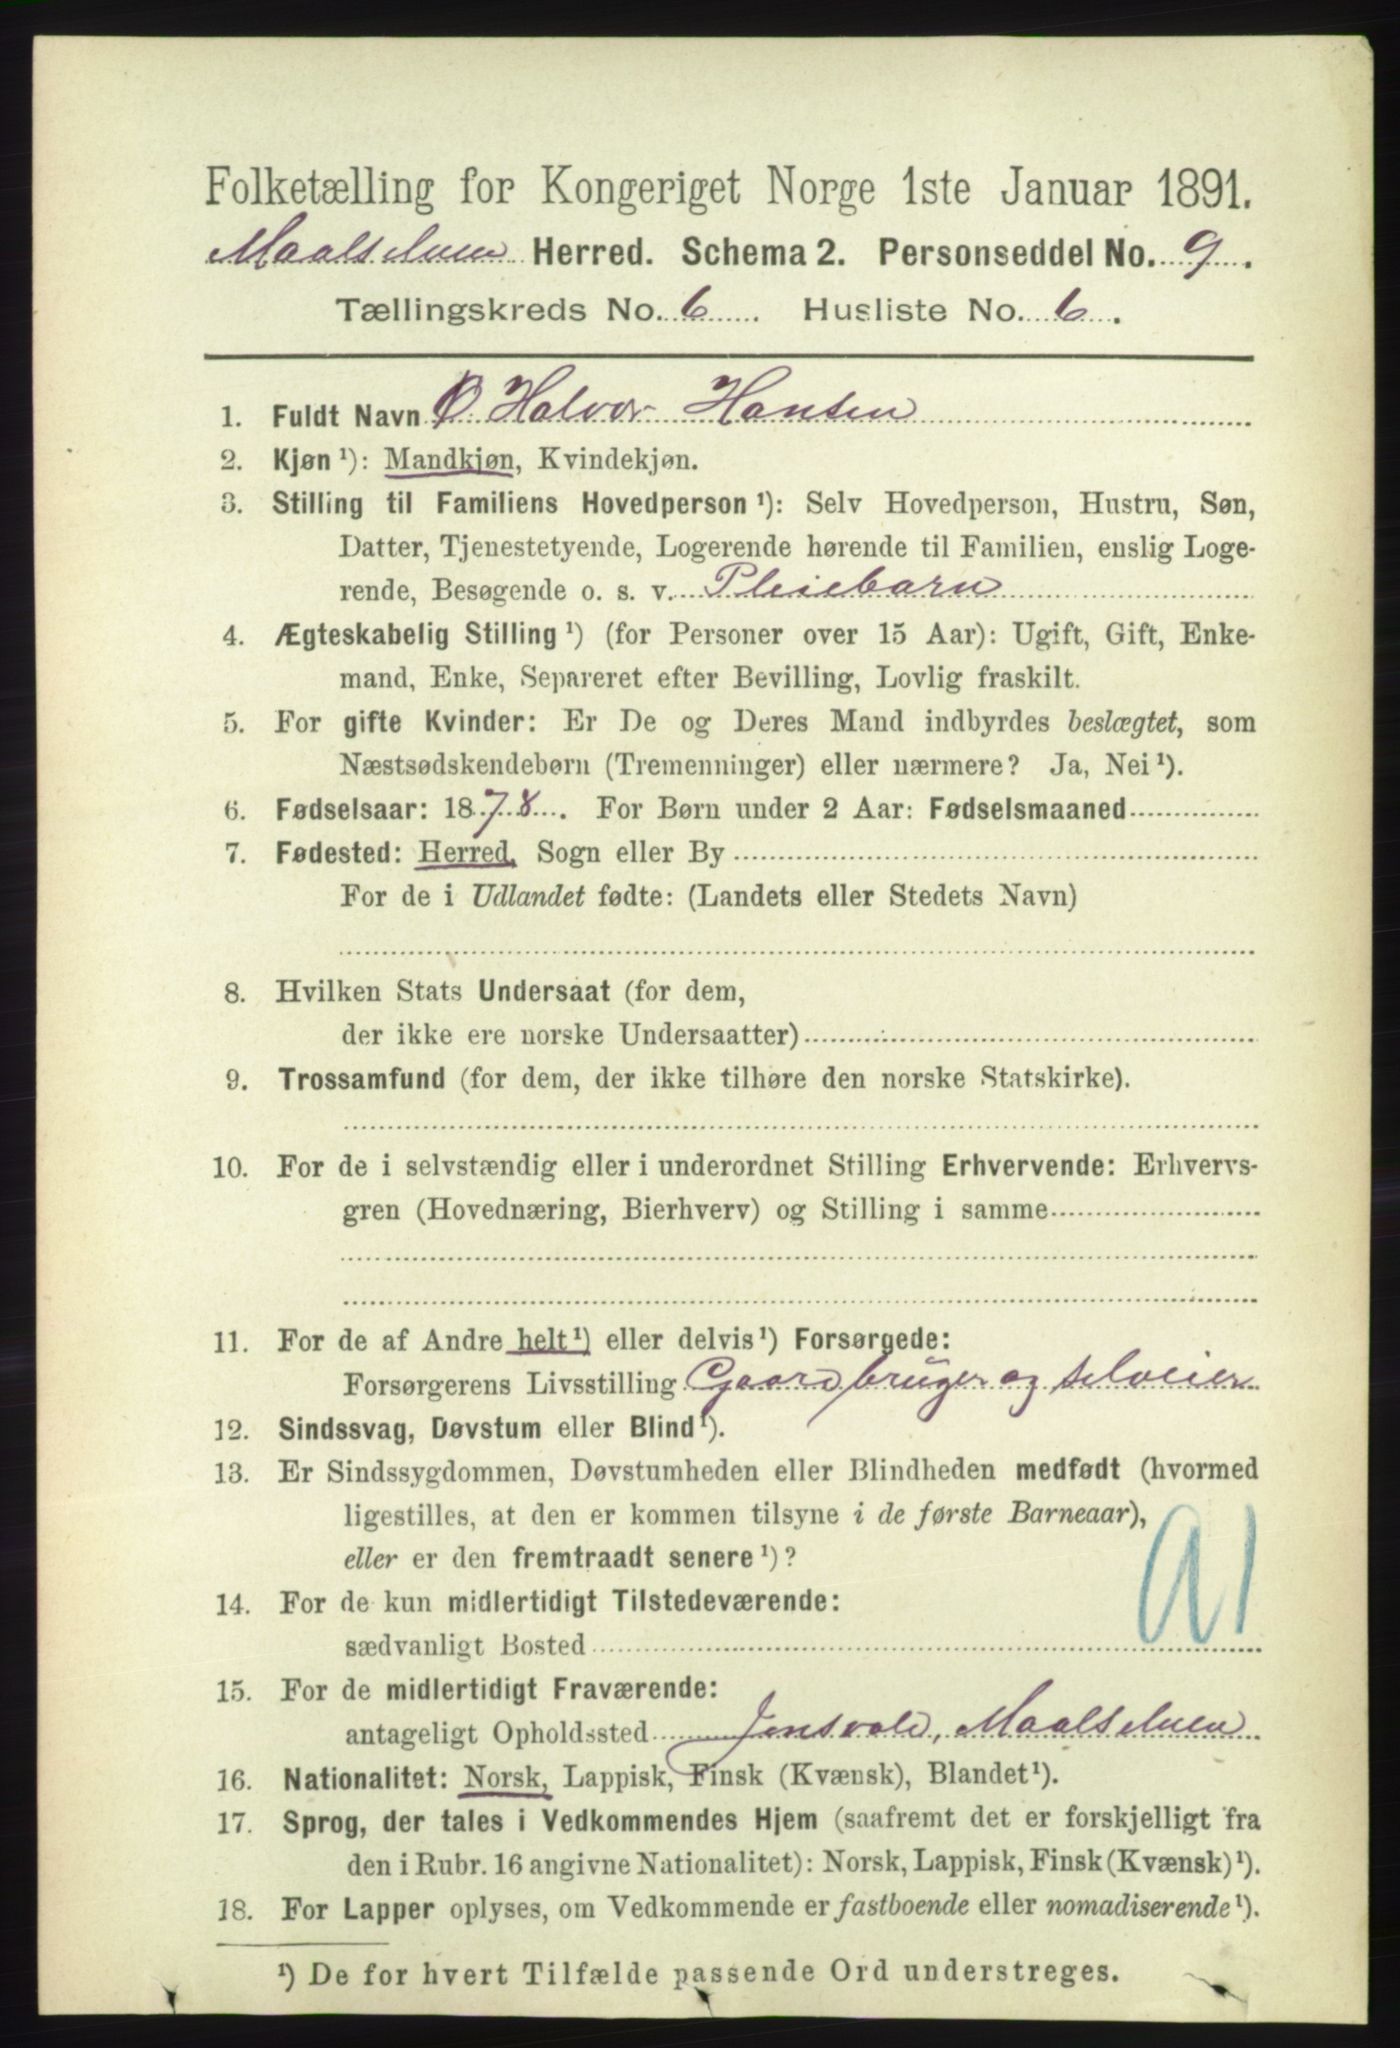 Folketælling for Kongeriget Norge 1ste Januar 1891.
Maalselven Herred. Schema 2. Personseddel No. 9.
Tællingskreds No. 6. Husliste No. 6.
1. Fuldt Navn Halvor Hansen
2. Kjøn¹): Mandkjøn, Kvindekjøn.
3. Stilling til Familiens Hovedperson¹): Selv Hovedperson, Hustru, Søn,
Datter, Tjenestetyende, Logerende hørende til Familien, enslig Loge-
rende, Besøgende o. s. v. Pleiebarn
4. Ægteskabelig Stilling¹) (for Personer over 15 Aar): Ugift, Gift, Enke-
mand, Enke, Separeret efter Bevilling, Lovlig fraskilt.
5. For gifte Kvinder: Er De og Deres Mand indbyrdes beslægtet, som
Næstsødskendebørn (Tremenninger) eller nærmere? Ja, Nei¹).
6. Fødselsaar: 1878. For Børn under 2 Aar: Fødselsmaaned
7. Fødested: Herred, Sogn eller By
For de i Udlandet fødte: (Landets eller Stedets Navn)
8. Hvilken Stats Undersaat (for dem,
der ikke ere norske Undersaatter)
9. Trossamfund (for dem, der ikke tilhøre den norske Statskirke).
10. For de i selvstændig eller i underordnet Stilling Erhvervende: Erhvervs-
gren (Hovednæring, Bierhverv) og Stilling i samme
11. For de af Andre helt¹) eller delvis¹) Forsørgede:
Forsørgerens Livsstilling Gaardbruger og selveier
12. Sindssvag, Døvstum eller Blind¹).
13. Er Sindssygdommen, Døvstumheden eller Blindheden medfødt (hvormed
ligestilles, at den er kommen tilsyne i de første Barneaar),
eller er den fremtraadt senere¹)?
14. For de kun midlertidigt Tilstedeværende:
sædvanligt Bosted
15. For de midlertidigt Fraværende:
antageligt Opholdssted Jensvold, Maalselven
16. Nationalitet: Norsk, Lappisk, Finsk (Kvænsk), Blandet¹).
17. Sprog, der tales i Vedkommendes Hjem (saafremt det er forskjelligt fra
den i Rubr. 16 angivne Nationalitet): Norsk, Lappisk, Finsk (Kvænsk)¹).
18. For Lapper oplyses, om Vedkommende er fastboende eller nomadiserende¹).
¹) De for hvert Tilfælde passende Ord understreges.